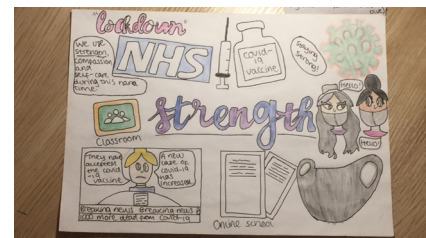 "Lockdown"
We use
strength,
compassion
and
self-care
during this hard
time.
NHS
covid-
19
vaccine
Staying
strong!
Hello!
Hello!
strength
Classroom
They have
accepted
the covid
-19
vaccine
A new
case of
covid-19
has
increased
Breaking news Breaking news
more dead from covid-19
Online school